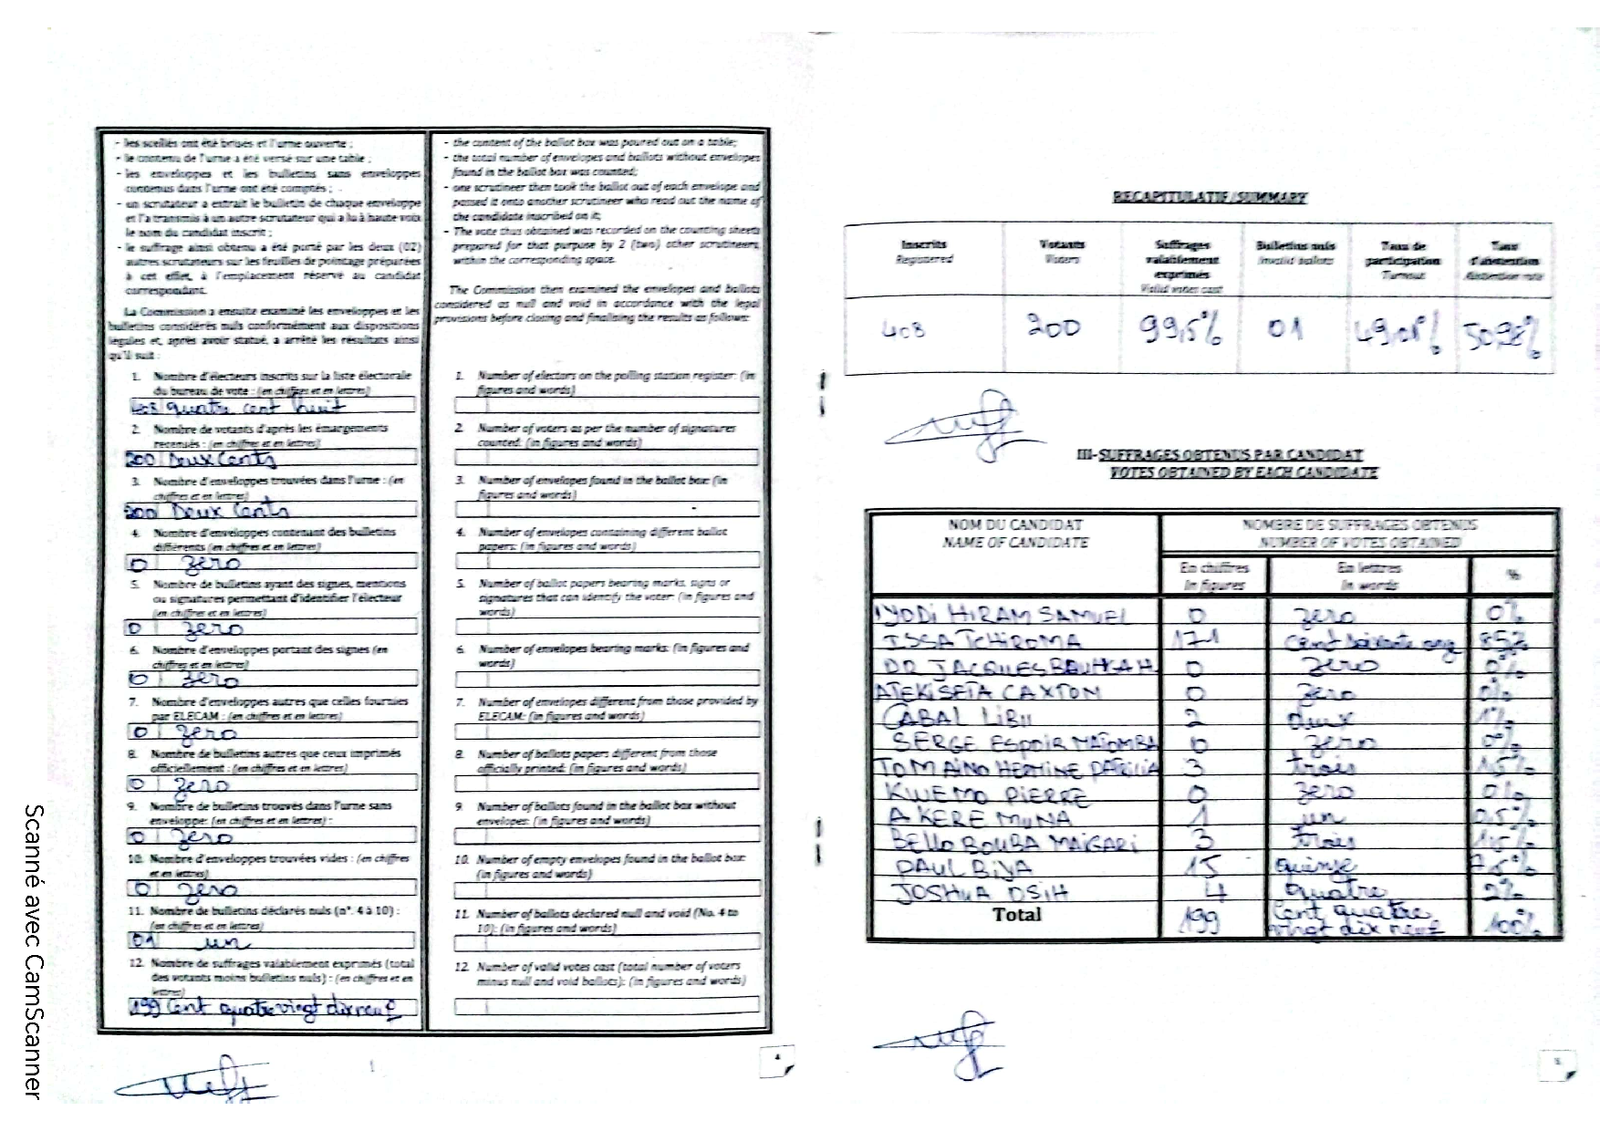 - les scellés ont été brisés et l'urne ouverte ;
- le contenu de l'urne a été versé sur une table ;
- les enveloppes et les bulletins sans enveloppes
contenus dans l'urne ont été comptés ;
- un scrutateur a extrait le bulletin de chaque enveloppe
et l'a transmis à un autre scrutateur qui a lu à haute voix
le nom du candidat inscrit ;
- le suffrage ainsi obtenu a été porté par les deux (02)
autres scrutateurs sur les feuilles de pointage préparées
à cet effet, à l'emplacement réservé au candidat
correspondant.
La Commission a ensuite examiné les enveloppes et les
bulletins considérés nuls conformément aux dispositions
légales et, après avoir statué, a arrêté les résultats ainsi
qu'il suit :
1. Nombre d'électeurs inscrits sur la liste électorale
du bureau de vote : (en chiffres et en lettres)
408 quatre cent huit
2. Nombre de votants d'après les émargements
recensés : (en chiffres et en lettres)
200 Deux Cents
3. Nombre d'enveloppes trouvées dans l'urne : (en
chiffres et en lettres)
200 Deux Cents
4. Nombre d'enveloppes contenant des bulletins
différents (en chiffres et en lettres)
0 zero
5. Nombre de bulletins ayant des signes, mentions
ou signatures permettant d'identifier l'électeur
(en chiffres et en lettres)
0 zero
6. Nombre d'enveloppes portant des signes (en
chiffres et en lettres)
0 zero
7. Nombre d'enveloppes autres que celles fournies
par ELECAM : (en chiffres et en lettres)
0 zero
8. Nombre de bulletins autres que ceux imprimés
officiellement : (en chiffres et en lettres)
0 zero
9. Nombre de bulletins trouvés dans l'urne sans
enveloppe: (en chiffres et en lettres) :
0 zero
10. Nombre d'enveloppes trouvées vides : (en chiffres
et en lettres)
0 zero
11. Nombre de bulletins déclarés nuls (n°. 4 à 10) :
(en chiffres et en lettres)
01 un
12. Nombre de suffrages valablement exprimés (total
des votants moins bulletins nuls) : (en chiffres et en
lettres)
199 Cent quatre vingt dix neuf
- the content of the ballot box was poured out on a table;
- the total number of envelopes and ballots without envelopes
found in the ballot box was counted;
- one scrutineer then took the ballot out of each envelope and
passed it onto another scrutineer who read out the name of
the candidate inscribed on it;
- The vote thus obtained was recorded on the counting sheets
prepared for that purpose by 2 (two) other scrutineers
within the corresponding space.
The Commission then examined the envelopes and ballots
considered as null and void in accordance with the legal
provisions before closing and finalising the results as follows:
1. Number of electors on the polling station register: (in
figures and words)
2. Number of voters as per the number of signatures
counted: (in figures and words)
3. Number of envelopes found in the ballot box: (in
figures and words)
4. Number of envelopes containing different ballot
papers: (in figures and words)
5. Number of ballot papers bearing marks, signs or
signatures that can identify the voter: (in figures and
words)
6. Number of envelopes bearing marks: (in figures and
words)
7. Number of envelopes different from those provided by
ELECAM: (in figures and words)
8. Number of ballots papers different from those
officially printed: (in figures and words)
9. Number of ballots found in the ballot box without
envelopes: (in figures and words)
10. Number of empty envelopes found in the ballot box:
(in figures and words)
11. Number of ballots declared null and void (No. 4 to
10): (in figures and words)
12. Number of valid votes cast (total number of voters
minus null and void ballots): (in figures and words)
4
RECAPITULATIF/SUMMARY
Inscrits Registered Votants Voters Suffrages valablement exprimés Valid votes cast Bulletins nuls Invalid ballots Taux de participation Turnout Taux d'abstention Abstention rate
408 200 99,5% 01 49,01% 50,98%
III-SUFFRAGES OBTENUS PAR CANDIDAT
VOTES OBTAINED BY EACH CANDIDATE
NOM DU CANDIDAT NOMBRE DE SUFFRAGES OBTENUS
NAME OF CANDIDATE NUMBER OF VOTES OBTAINED
En chiffres En lettres %
In figures In words
IYODI HIRAM SAMUEL 0 zero 0%
ISSA TCHIROMA 171 cent soixante onze
DR JACQUES 0 zero 0%
ATEKI SETA CAXTOM 0 zero 0%
CABAL LIBII 2 deux 1%
SERGE ESPOIR MATOMBA 0 zero 0%
TOMAINO HERMINE PATRICIA 3 trois 1,5%
KWEMO PIERRE 0 zero 0%
AKERE MUNA 1 un 0,5%
BELLO BOUBA MAIGARI 3 trois 1,5%
PAUL BIYA 15 quinze 7,5%
JOSHUA OSIH 4 quatre 2%
Total 199 Cent quatre vingt dix neuf 100%
5
Scanné avec CamScanner